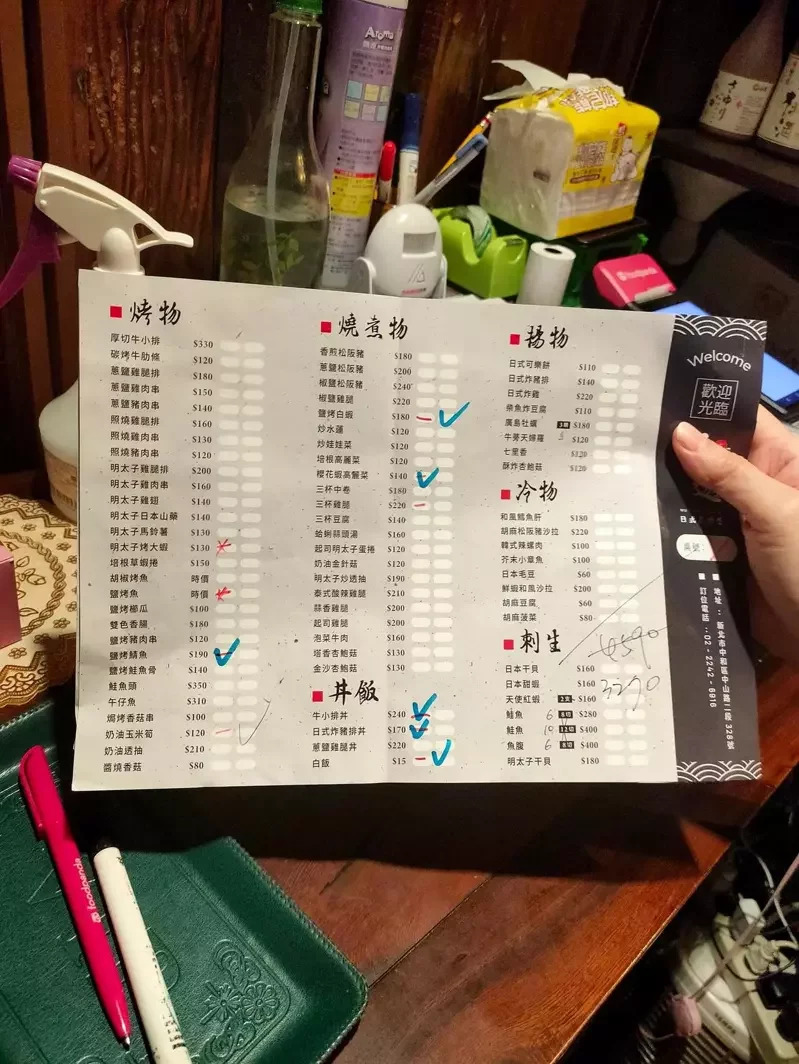 Aroma
foodpanda
烤物
厚切牛小排 $330
碳烤牛肋條 $120
蔥鹽雞腿排 $180
蔥鹽雞肉串 $150
蔥鹽豬肉串 $140
照燒雞腿排 $160
照燒雞肉串 $130
照燒豬肉串 $120
明太子雞腿排 $200
明太子雞肉串 $160
明太子雞翅 $140
明太子日本山藥 $140
明太子馬鈴薯 $130
明太子烤大蝦 $130
培根草蝦捲 $150
胡椒烤魚 時價
鹽烤魚 時價
鹽烤櫛瓜 $100
雙色香腸 $180
鹽烤豬肉串 $120
鹽烤鯖魚 $190
鹽烤鮭魚骨 $140
鮭魚頭 $350
午仔魚 $310
焗烤香菇串 $100
奶油玉米筍 $120
奶油透抽 $210
醬燒香菇 $80
燒煮物
香煎松阪豬 $180
蔥鹽松阪豬 $200
椒鹽松阪豬 $240
椒鹽雞腿 $220
鹽烤白蝦 $180
炒水蓮 $120
炒娃娃菜 $120
培根高麗菜 $120
櫻花蝦高麗菜 $140
三杯中卷 $180
三杯雞腿 $220
三杯豆腐 $140
蛤蜊蒜頭湯 $160
起司明太子蛋捲 $120
奶油金針菇 $120
明太子炒透抽 $190
泰式酸辣雞腿 $210
蒜香雞腿 $200
起司雞腿 $200
泡菜牛肉 $160
塔香杏鮑菇 $130
金沙杏鮑菇 $130
丼飯
牛小排丼 $240
日式炸豬排丼 $170
蔥鹽雞腿丼 $220
白飯 $15
揚物
日式可樂餅 $110
日式炸豬排 $140
日式炸雞 $220
柴魚炸豆腐 $110
廣島牡蠣 3顆 $180
牛蒡天婦羅 $120
七里香 $120
酥炸杏鮑菇 $120
冷物
和風鱈魚肝 $180
胡麻松阪豬沙拉 $220
韓式辣螺肉 $100
芥末小章魚 $100
日本毛豆 $60
鮮蝦和風沙拉 $200
胡麻豆腐 $60
胡麻菠菜 $80
刺生
日本干貝 $160
日本甜蝦 $160
天使紅蝦 2隻 $160
鮭魚 6 8切 $280
鮭魚 10 12切 $400
魚腹 6 8切 $400
明太子干貝 $180
3270
Welcome
歡迎
光臨
日式
桌號:
■ 地址:新北市中和區中山路二段328號
■ 訂位電話:02-2242-6916
foodpanda